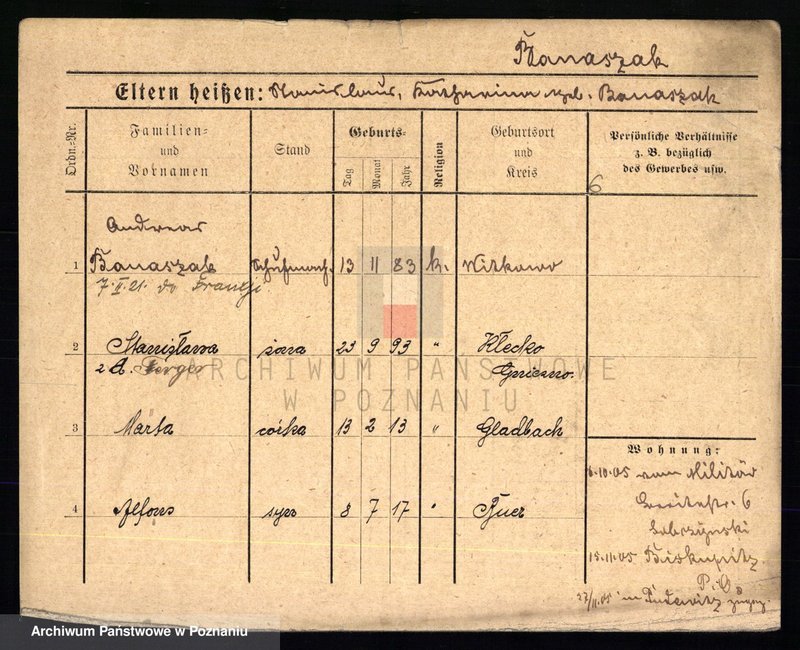 Banaszak
Eltern heißen: Stanislaus, Katharina geb. Banaszak
Ordn.-Nr.
Familien- und Vornamen
Stand
Geburts-
Tag
Monat
Jahr
Religion
Geburtsort und Kreis
Persönliche Verhältnisse
z. B. bezüglich
des Gewerbes usw.
6
Andreas
1 Banaszak Schuhmach. 13 11 83 k. Witkowo
7.II.21. do Francji
2 Stanisława żona 23 9 93 " Kłecko
z d. Gniezno.
3 Marta córka 13 2 13 " Gladbach
4 Alfons syn 8 7 17 " Buer
Wohnung:
6.10.05 vom Militär
Breitestr. 6
15.11.05 Biskupitz
P.O.
27/11.05 in Pudewitz zugez.
ARCHIWUM PAŃSTWOWE
W POZNANIU
Archiwum Państwowe w Poznaniu